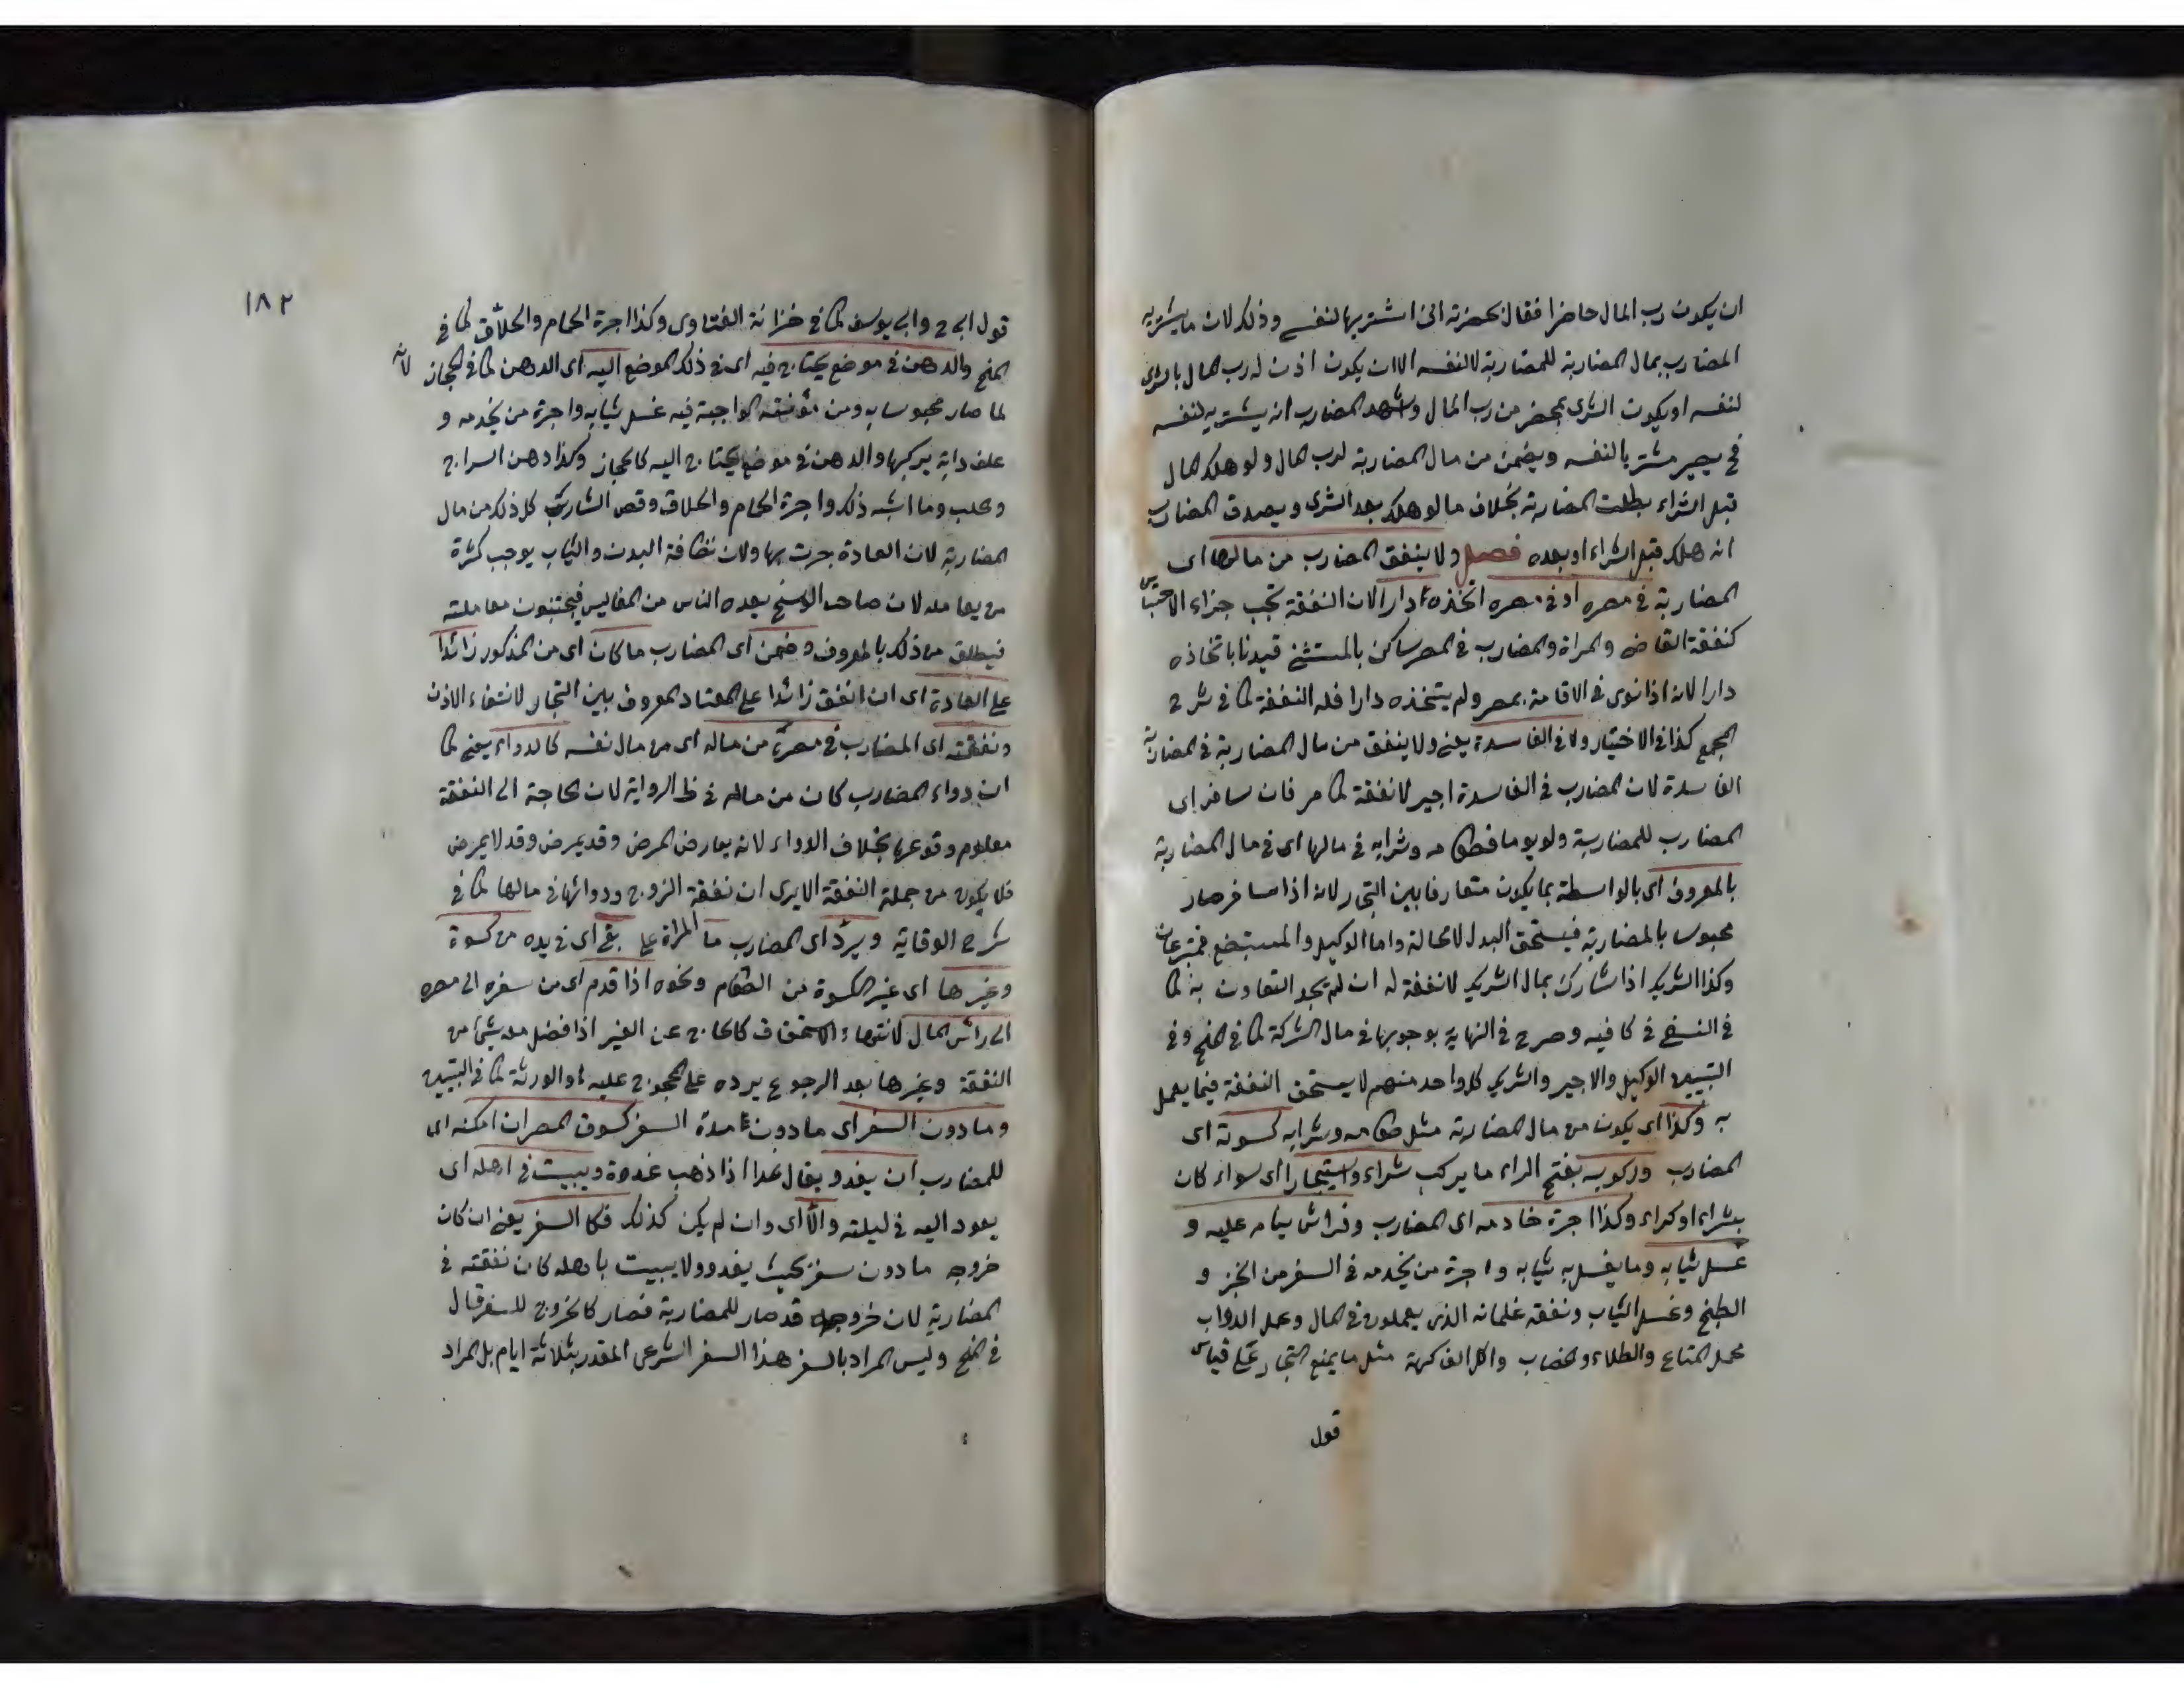 ان يكون رب المال حاضرا فقال بحضرته انى اشتريها لنفسى وذلك لان ما يشتريه
المضارب بمال المضاربة للمضاربة لا لنفسه الا ان يكون اذن له رب المال بالشراى
لنفسه او يكون الشرى بمحضر من رب المال وشهد المضارب انه يشتريه لنفسه
فح يصير مشتريا لنفسه ويضمن من مال المضاربة لرب المال ولو هلك المال
قبل الشراء بطلت المضاربة بخلاف ما لو هلك بعد الشرى ويصدق المضارب
انه هلك قبل الشراء او بعده فصل ولا ينفق المضارب من مالها اى
المضاربة فى مصره او فى مصره اتخذه دارا لان النفقة تجب جزاء الاحتباس
كنفقة القاضى والمراة والمضارب فى المصر ساكن بالمستثنى قيدنا باتخاذه
دارا لانه اذا نوى فى الاقامة بمصر ولم يتخذه دارا فله النفقة كما فى شرح
المجمع كذا فى الاختيار ولا فى الفاسدة يعنى ولا ينفق من مال المضاربة فى المضاربة
الفاسدة لان المضارب فى الفاسدة اجير لا نفقة كما مر فان سافر اى
المضارب للمضاربة ولو يوما فطعامه وشرابه فى مالها اى فى مال المضاربة
بالمعروف اى بالواسطة بما يكون متعارفا بين التجار لانه اذا سافر صار
محبوسا بالمضاربة فيستحق البدل لا محالة واما الوكيل والمستبضع فمتبرعان
وكذا الشريك اذا شارك بمال الشريك لا نفقة له ان لم يجد التعاون به كما
فى النسفى فى كافيه وصرح فى النهاية بوجوبها فى مال الشركة كما فى المنح وفى
التبيين الوكيل والاجير والشريك كل واحد منهم لا يستحق النفقة فيما يعمل
به وكذا اى يكون من مال المضاربة مثل طعامه وشرابه كسوته اى
المضارب وركوبه بفتح الراء ما يركب شراء واستيجارا اى سواء كان
بشراء او كراء وكذا اجرة خادمه اى المضارب وفراش ينام عليه و
غسل ثيابه وما يغسل به ثيابه واجرة من يخدمه فى السفر من الخبز و
الطبخ وغسل الثياب ونفقة غلمانه الذى يعملون فى المال وعمل الدواب
محمل المتاع والطلاء والخضاب واكل الفاكهة مثل ما يمنع التجار على قياس
قول
١٨٢
قول ابى ح وابى يوسف كما فى خزانة الفتاوى وكذا اجرة الحمام والحلاق كما فى
المنح والدهن فى موضع يحتاج فيه اى فى ذلك الموضع اليه اى الدهن كما فى الحجاز لانه
لما صار محبوسا به ومن مؤنته الواجبة فيه غسل ثيابه واجرة من يخدمه و
علف دابة يركبها والدهن فى موضع يحتاج اليه كالحجاز وكذا دهن السراج
وحلب وما اشبه ذلك واجرة الحمام والحلاق وقص الشارب كل ذلك من مال
المضاربة لان العادة جرت بها ولان نظافة البدن والثياب يوجب كثرة
من يعامله لان صاحب الوسخ يعده الناس من المفاليس فيجتنبون معاملته
فيطلق من ذلك بالمعروف وضمن اى المضارب ما كان اى من المذكور زائدا
على العادة اى ان انفق زائدا على المعتاد المعروف بين التجار لانتفاء الاذن
ونفقته اى المضارب فى مصره من ماله اى من مال نفسه كالدواء يعنى كما
ان دواء المضارب كان من ماله فى ظ الرواية لان الحاجة الى النفقة
معلوم وقوعها بخلاف الدواء لانه يعارض المرض وقد يمرض وقد لا يمرض
فلا يكون من جملة النفقة الا يرى ان نفقة الزوج ودوائها فى مالها كما فى
شرح الوقاية ويرد اى المضارب ما المراة على بقى اى فى يده من كسوة
وغيرها اى غير الكسوة من الطعام ونحوه اذا قدم اى من سفره الى مصره
الى رأس المال لانتهاء الاستحقاق كالحاج عن الغير اذا فضل معه شيئا من
النفقة وغيرها بعد الرجوع يرده على المحجوج عليه او الورثة كما فى التبيين
وما دون السفر اى ما دون مدة السفر كسوق المصر ان امكنه اى
للمضارب ان يغدو يقال غدا اذا ذهب غدوة ويبيت فى اهله اى
يعود اليه فى ليلته والا اى وان لم يكن كذلك فكالسفر يعنى ان كان
خروجه ما دون سفر بحيث يغدو ولا يبيت باهله كان نفقته فى
المضاربة لان خروجه قد صار للمضاربة فصار كالخروج للسفر قال
فى المنح وليس المراد بالسفر هذا السفر الشرعى المقدر بثلاثة ايام بل المراد